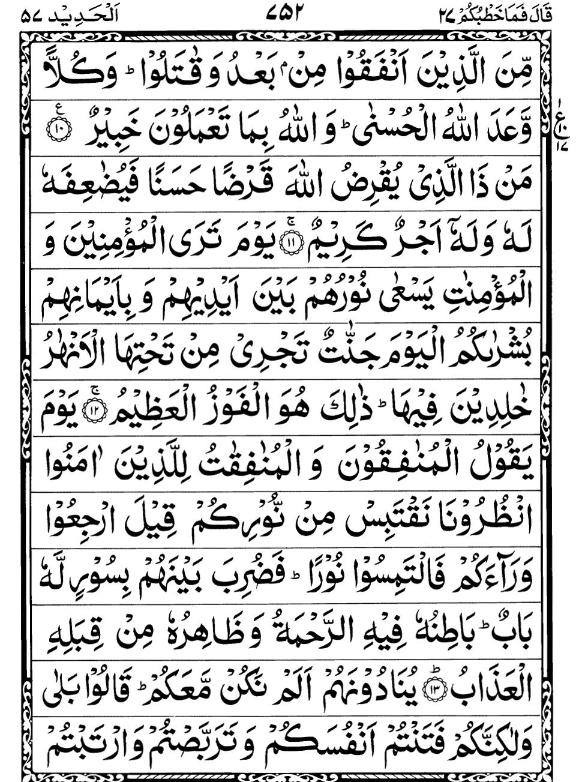 قَالَ فَمَا خَطْبُكُمْ ٢٧ ٧٥٢ اَلْحَدِيْد ٥٧
مِّنَ الَّذِيْنَ اَنْفَقُوْا مِنْۢ بَعْدُ وَقٰتَلُوْا ؕ وَكُلًّا
وَّعَدَ اللّٰهُ الْحُسْنٰى ؕ وَاللّٰهُ بِمَا تَعْمَلُوْنَ خَبِيْرٌ ۧ ﴿۱۰﴾
ع ١٠ ١٧
مَنْ ذَا الَّذِيْ يُقْرِضُ اللّٰهَ قَرْضًا حَسَنًا فَيُضٰعِفَهٗ
لَهٗ وَلَهٗۤ اَجْرٌ كَرِيْمٌ ۚ ﴿۱۱﴾ يَوْمَ تَرَى الْمُؤْمِنِيْنَ وَ
الْمُؤْمِنٰتِ يَسْعٰى نُوْرُهُمْ بَيْنَ اَيْدِيْهِمْ وَبِاَيْمَانِهِمْ
بُشْرٰىكُمُ الْيَوْمَ جَنّٰتٌ تَجْرِيْ مِنْ تَحْتِهَا الْاَنْهٰرُ
خٰلِدِيْنَ فِيْهَا ؕ ذٰلِكَ هُوَ الْفَوْزُ الْعَظِيْمُ ۚ ﴿۱۲﴾ يَوْمَ
يَقُوْلُ الْمُنٰفِقُوْنَ وَالْمُنٰفِقٰتُ لِلَّذِيْنَ اٰمَنُوا
انْظُرُوْنَا نَقْتَبِسْ مِنْ نُّوْرِكُمْ قِيْلَ ارْجِعُوْا
وَرَآءَكُمْ فَالْتَمِسُوْا نُوْرًا ؕ فَضُرِبَ بَيْنَهُمْ بِسُوْرٍ لَّهٗ
بَابٌ ؕ بَاطِنُهٗ فِيْهِ الرَّحْمَةُ وَظَاهِرُهٗ مِنْ قِبَلِهِ
الْعَذَابُ ؕ ﴿۱۳﴾ يُنَادُوْنَهُمْ اَلَمْ نَكُنْ مَّعَكُمْ ؕ قَالُوْا بَلٰى
وَلٰكِنَّكُمْ فَتَنْتُمْ اَنْفُسَكُمْ وَتَرَبَّصْتُمْ وَارْتَبْتُمْ